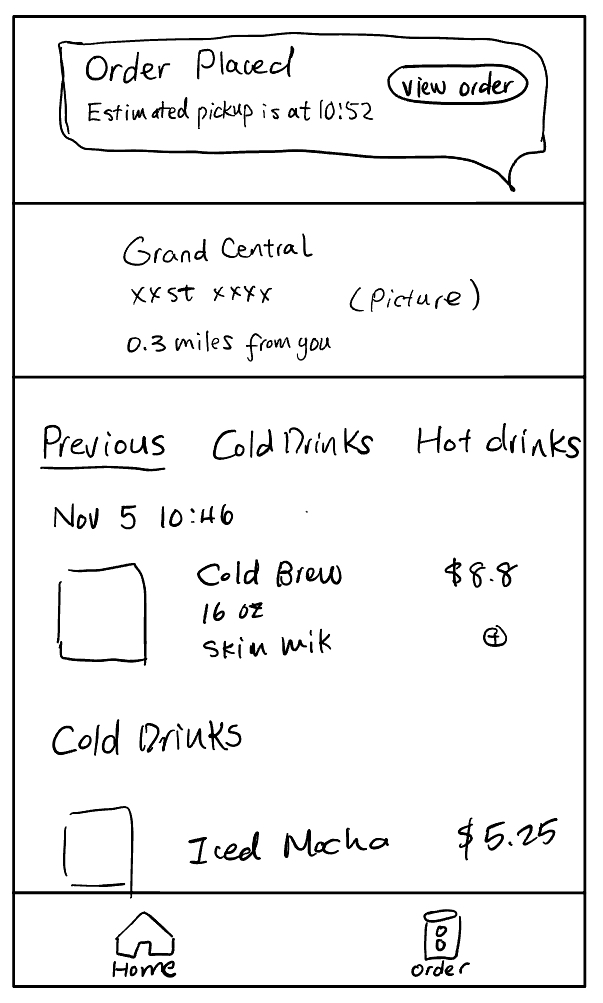 Order Placed
view order
Estimated pickup is at 10:52
Grand Central
xxst xxxx
(Picture)
0.3 miles from you
Previous Cold Drinks Hot drinks
Nov 5 10:46
Cold Brew $8.8
16 oz
skim mik
Cold Drinks
Iced Mocha $5.25
Home order